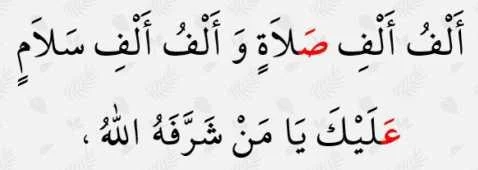 أَلْفُ أَلْفِ صَلاَةٍ وَ أَلْفُ أَلْفِ سَلاَمٍ
عَلَيْكَ يَا مَنْ شَرَّفَهُ اللهُ ،